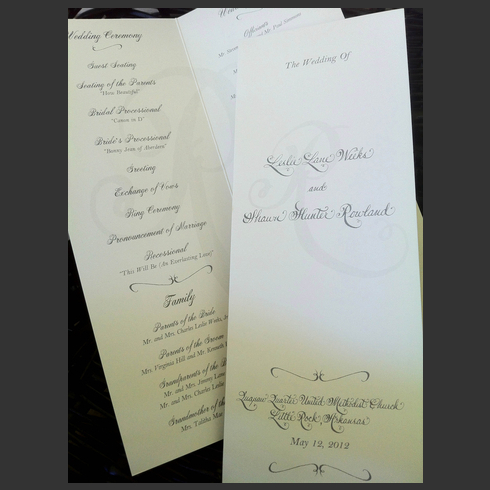 Wedding Ceremony
Guest Seating
Seating of the Parents
"How Beautiful"
Bridal Processional
"Canon in D"
Bride's Processional
Greeting
Exchange of Vows
Ring Ceremony
Pronouncement of Marriage
Recessional
"This Will Be (An Everlasting Love)"
Family
Parents of the Bride
Mr. and Mrs. Charles Leslie Weeks,
Parents of the Groom
Mrs. Virginia Hill and Mr. Kenneth
Grandparents of the
Mr. and Mrs. Jimmy
Mr. and Mrs. Charles
Grandmother of the
Mrs. Talitha
Officiants
and Mr. Paul
The Wedding Of
Leslie Lane Weeks
and
Shawn Hunter Rowland
Quapaw Quarter United Methodist Church
Little Rock, Arkansas
May 12, 2012